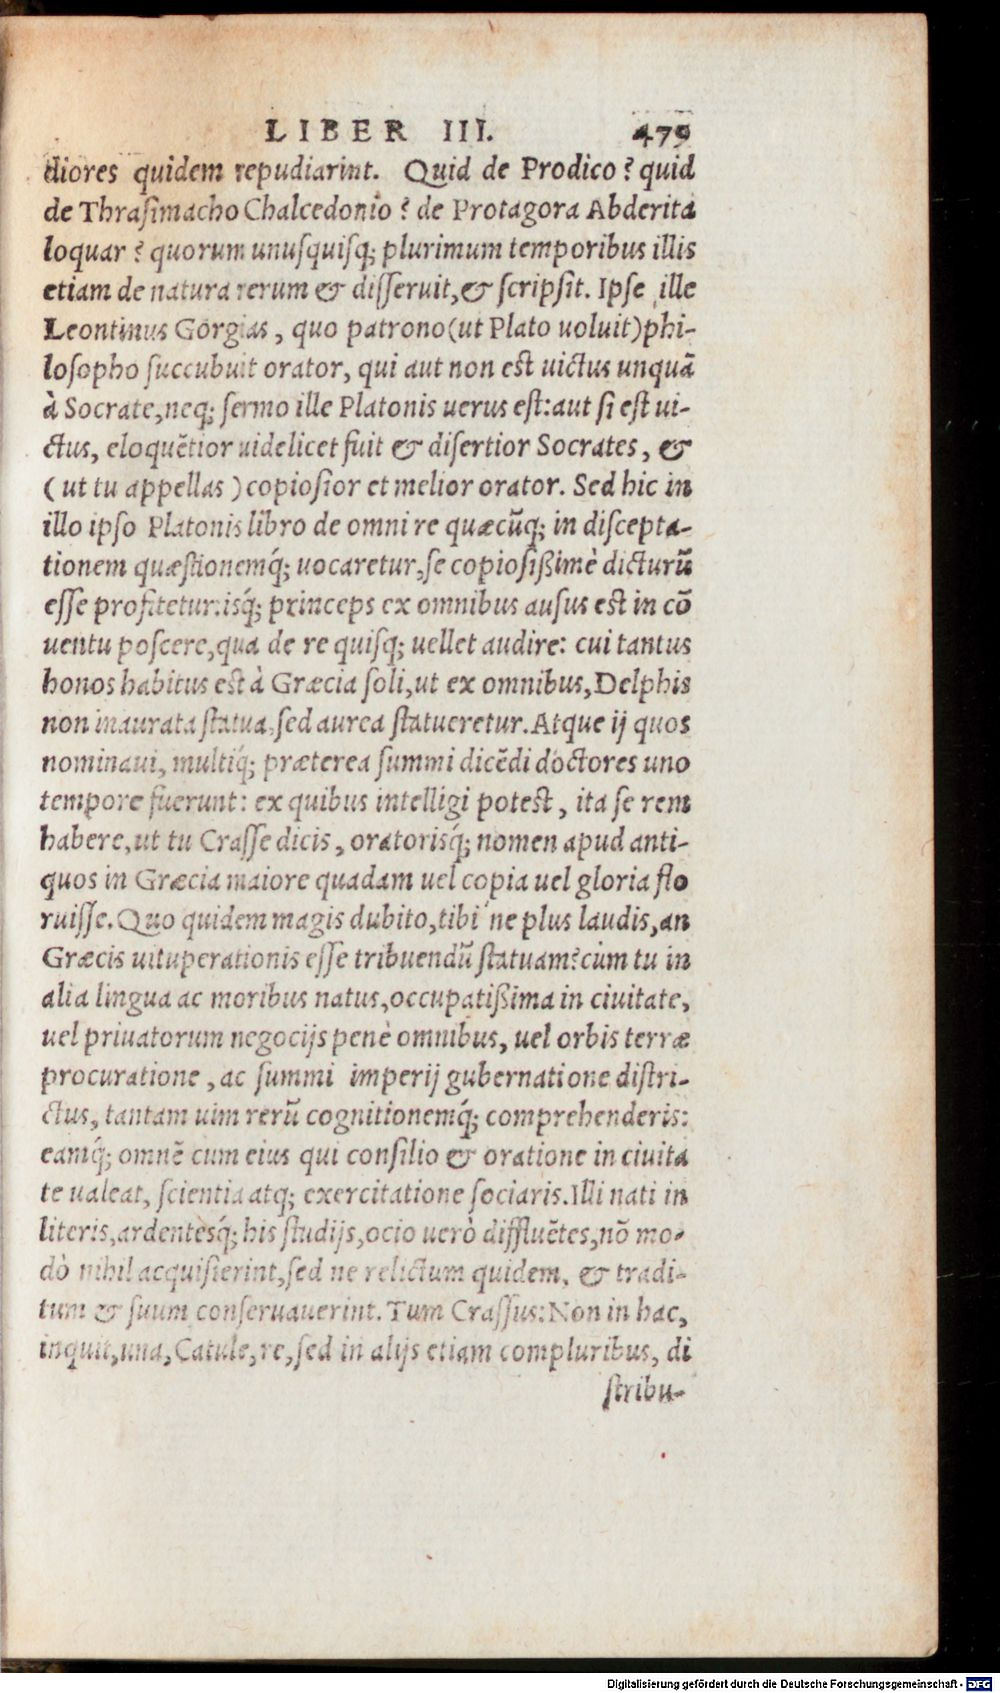 LIBER III. 479
diores quidem repudiarint. Quid de Prodico? quid
de Thrasimacho Chalcedonio? de Protagora Abderita
loquar? quorum unusquisq; plurimum temporibus illis
etiam de natura rerum & disseruit, & scripsit. Ipse ille
Leontinus Gorgias, quo patrono (ut Plato uoluit) phi-
losopho succubuit orator, qui aut non est uictus unquā
à Socrate, neq; sermo ille Platonis uerus est: aut si est ui-
ctus, eloquētior uidelicet fuit & disertior Socrates, &
(ut tu appellas) copiosior et melior orator. Sed hic in
illo ipso Platonis libro de omni re quæcūq; in discepta-
tionem quæstionemq́; uocaretur, se copiosißimè dicturū
esse profitetur: isq́; princeps ex omnibus ausus est in cō
uentu poscere, qua de re quisq; uellet audire: cui tantus
honos habitus est à Græcia soli, ut ex omnibus, Delphis
non inaurata statua, sed aurea statueretur. Atque ij quos
nominaui, multiq́; præterea summi dicēdi doctores uno
tempore fuerunt: ex quibus intelligi potest, ita se rem
habere, ut tu Crasse dicis, oratorisq́; nomen apud anti-
quos in Græcia maiore quadam uel copia uel gloria flo
ruisse. Quo quidem magis dubito, tibi'ne plus laudis, an
Græcis uituperationis esse tribuendū statuam? cùm tu in
alia lingua ac moribus natus, occupatißima in ciuitate,
uel priuatorum negocijs penè omnibus, uel orbis terræ
procuratione, ac summi imperij gubernatione distri-
ctus, tantam uim rerū cognitionemq́; comprehenderis:
eamq́; omnē cum eius qui consilio & oratione in ciuita
te ualeat, scientia atq; exercitatione sociaris. Illi nati in
literis, ardentesq́; his studijs, ocio uerò diffluētes, nō mo-
dò nihil acquisierint, sed ne relictum quidem, & tradi-
tum & suum conseruauerint. Tum Crassus: Non in hac,
inquit, una, Catule, re, sed in alijs etiam compluribus, di
stribu-
Digitalisierung gefördert durch die Deutsche Forschungsgemeinschaft - DFG